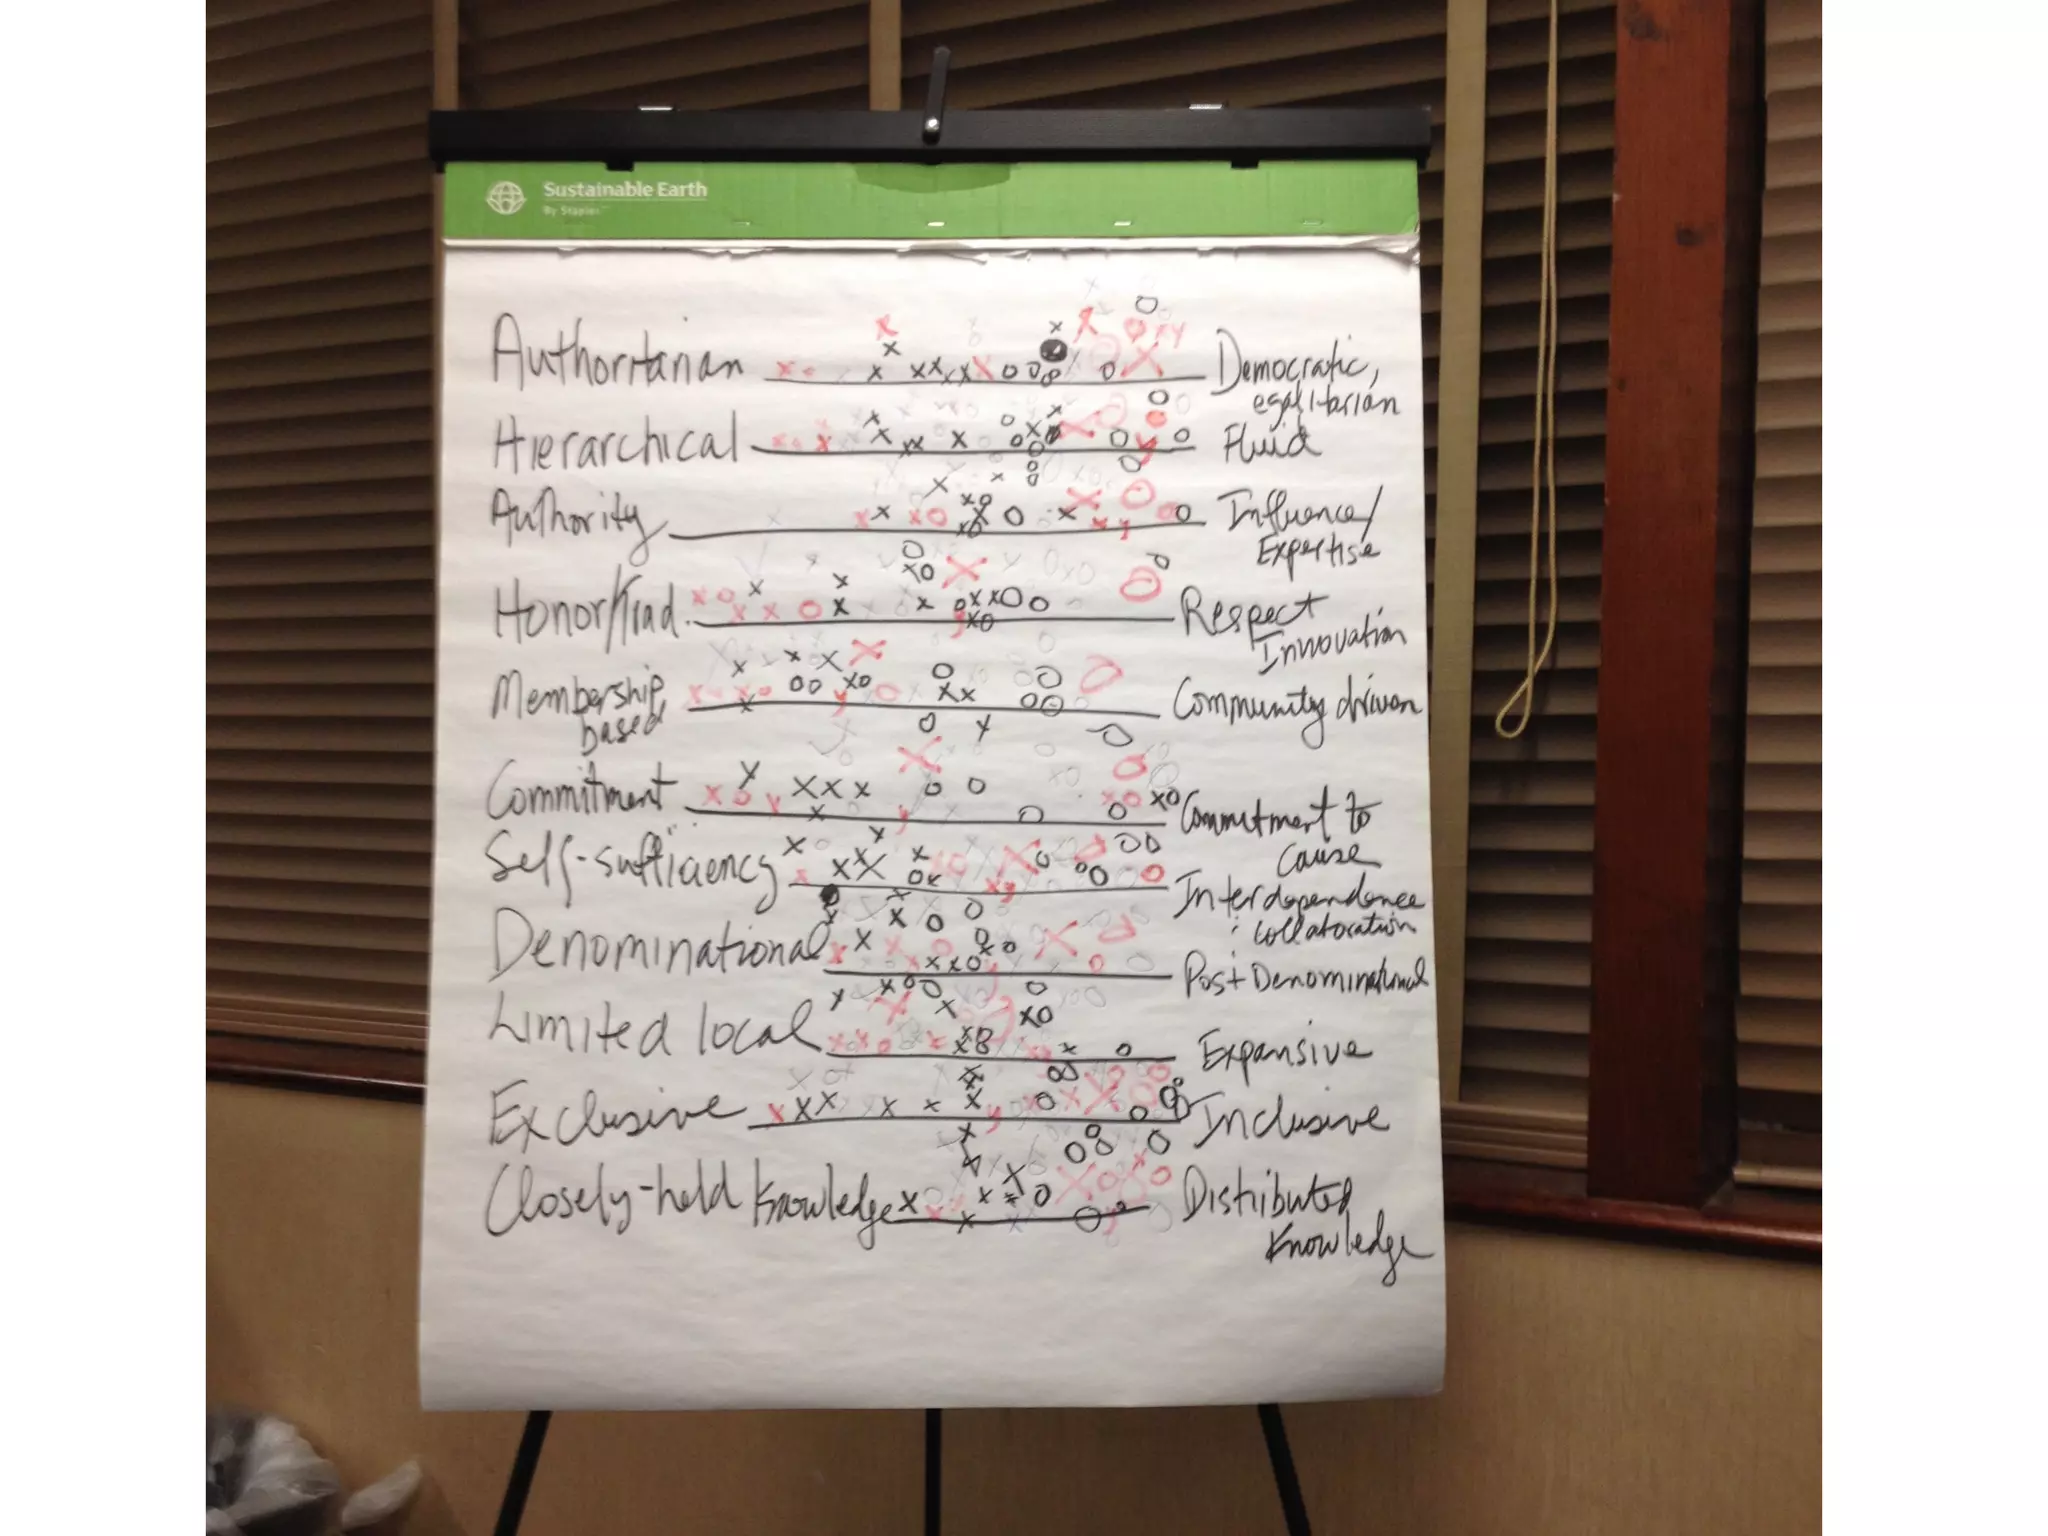 Sustainable Earth
By Staples™
Authoritarian Democratic,
egalitarian
Hierarchical Fluid
Authority Influence/
Expertise
Honor/Trad. Respect
Innovation
Membership Community driven
based
Commitment Commitment to
cause
Self-sufficiency Interdependence
: collaboration
Denominational Post Denominational
Limited local Expansive
Exclusive Inclusive
Closely-held knowledge Distributed
knowledge